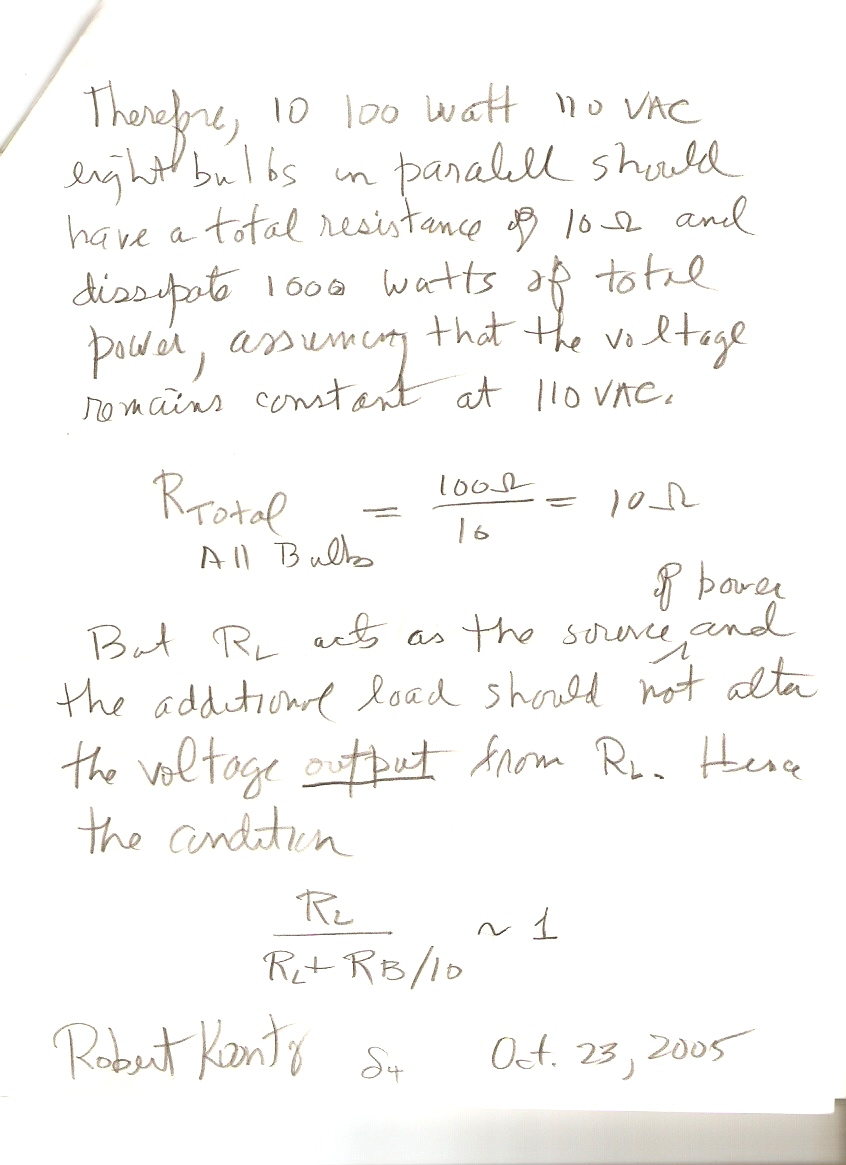 Therefore, 10 100 watt 110 VAC
light bulbs in paralell should
have a total resistance of 10 Ω and
dissipate 1000 watts of total
power, assuming that the voltage
remains constant at 110 VAC.
R Total All Bulbs = 100Ω / 10 = 10Ω
of power
But RL acts as the source, and
the additional load should not alter
the voltage output from RL. Hence
the condition
RL / RL + RB/10 ~ 1
Robert Koontz Oct. 23, 2005